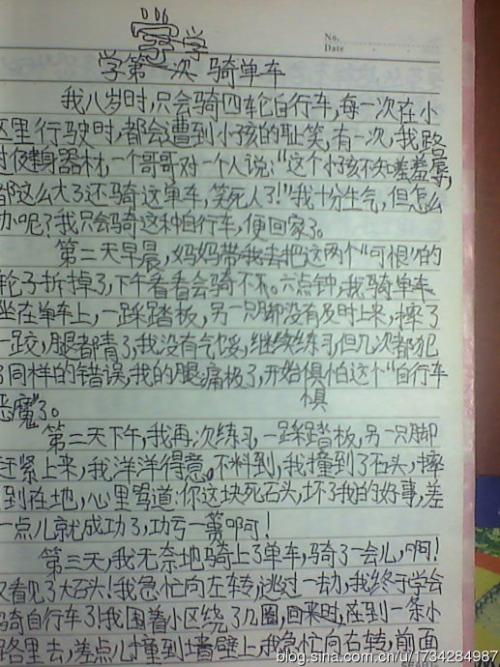 学 学
No.
Date
学第一次骑单车
我八岁时,只会骑四轮自行车,每一次在小
区里行驶时,都会遭到小孩的耻笑,有一次,我路
过健身器材,一个哥哥对一个人说:"这个小孩不知羞羞辱,
都这么大了还骑这单车,笑死人了!"我十分生气,但怎么
办呢?我只会骑这种自行车,便回家了。
第二天早晨,妈妈带我去把这两个"可恨"的
轮子拆掉了,下午看看会骑不。六点钟,我骑单车、
坐在单车上,一踩踏板,另一只脚没有及时上来,摔了
一跤,腿都青了,我没有气馁,继续练习,但几次都犯
了同样的错误,我的腿痛极了,开始惧怕这个"自行车
惧
恶魔"了。
第二天下午,我再次练习,一踩踏板,另一只脚
赶紧上来,我洋洋得意。不料到,我撞到了石头,摔
到在地,心里骂道:你这块死石头,坏了我的好事,差
一点儿就成功了,功亏一篑啊!
第三天,我无奈地骑上了单车,骑了一会儿,啊!
又看见了大石头!我急忙向左转,逃过一劫,我终于学会
骑自行车了!我围着小区绕了几圈,回来时,在到一条小
路里去,差点儿撞到墙壁上,我急忙向右转,前面
blog.sina.com.cn/u/1734284987